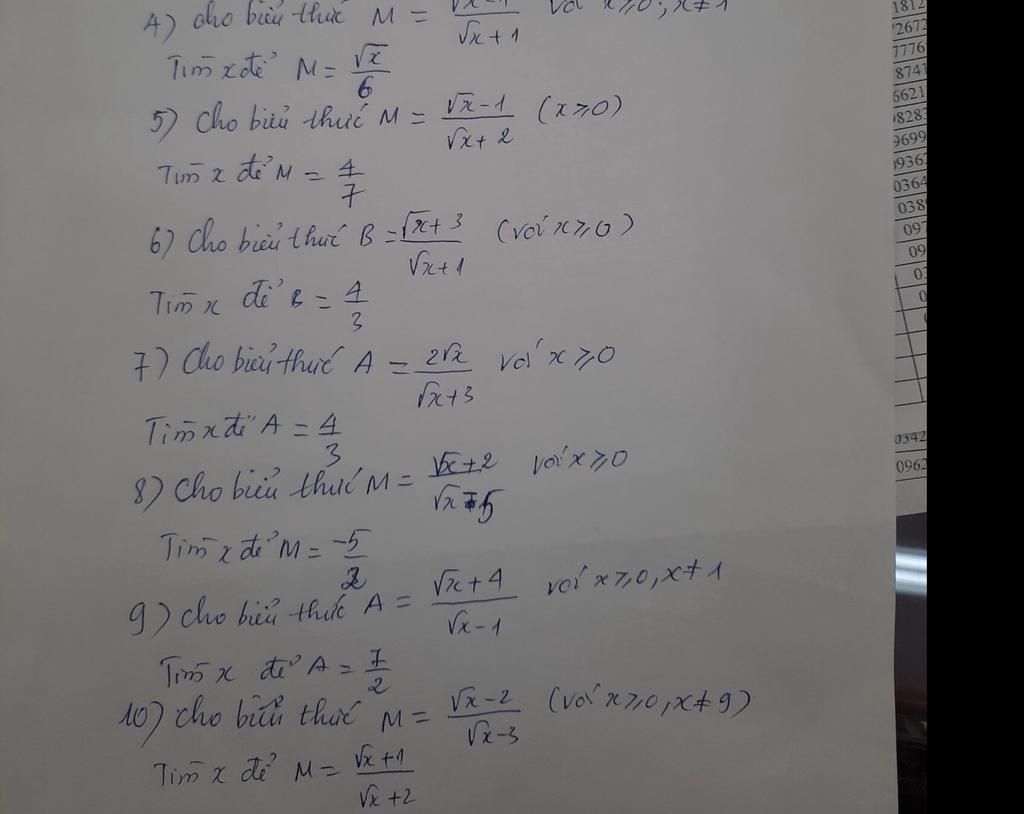 4) Cho biểu thức M = (√x-1)/(√x+1) với x≥0; x≠1
Tìm x để M = √x/6
5) Cho biểu thức M = (√x-1)/(√x+2) (x≥0)
Tìm x để M = 4/7
6) Cho biểu thức B = (√x+3)/(√x+1) (với x≥0)
Tìm x để B = 4/3
7) Cho biểu thức A = 2√x/(√x+3) với x≥0
Tìm x để A = 4/3
8) Cho biểu thức M = (√x+2)/(√x-5) với x≥0
Tìm x để M = -5/2
9) Cho biểu thức A = (√x+4)/(√x-1) với x≥0, x≠1
Tìm x để A = 7/2
10) Cho biểu thức M = (√x-2)/(√x-3) (với x≥0, x≠9)
Tìm x để M = (√x+1)/(√x+2)
1812
2672
7776
8741
6621
8283
9699
0936
0364
038
097
09
03
0
0342
0962